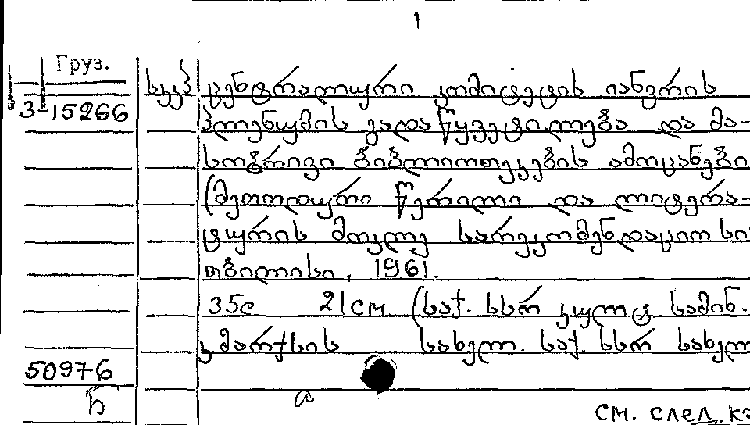 1
Груз.
3-15266
სკკპ ცენტრალური კომიტეტის იანვრის
პლენუმის გადაწყვეტილება და მა-
სობრივი ბიბლიოთეკების ამოცანები
(მეთოდური წერილი და ლიტერა-
ტურის მოკლე სარეკომენდაციო სი
თბილისი, 1961.
35с 21см (საქ. სსრ კულტ. სამინ.
კ მარქსის სახელ. საქ. სსრ სახელ
50976
см. след. к